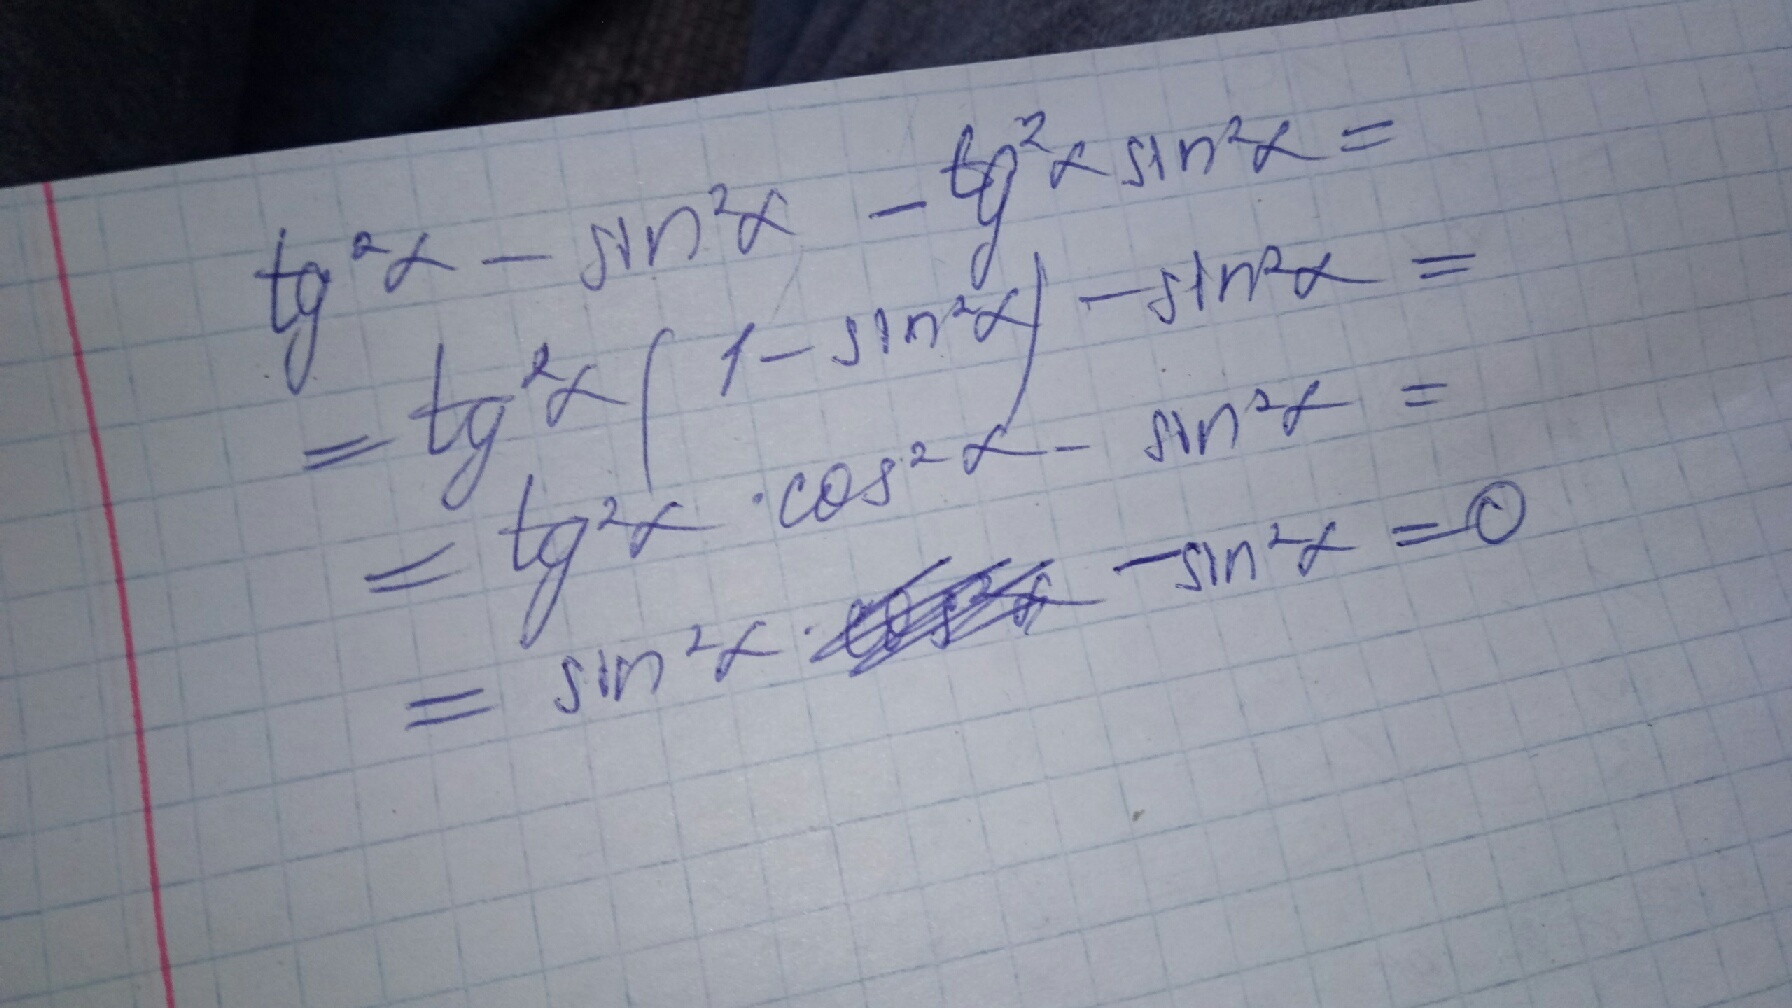 tg²α - sin²α - tg²α sin²α =
= tg²α (1 - sin²α) - sin²α =
= tg²α · cos²α - sin²α =
= sin²α · - sin²α = 0